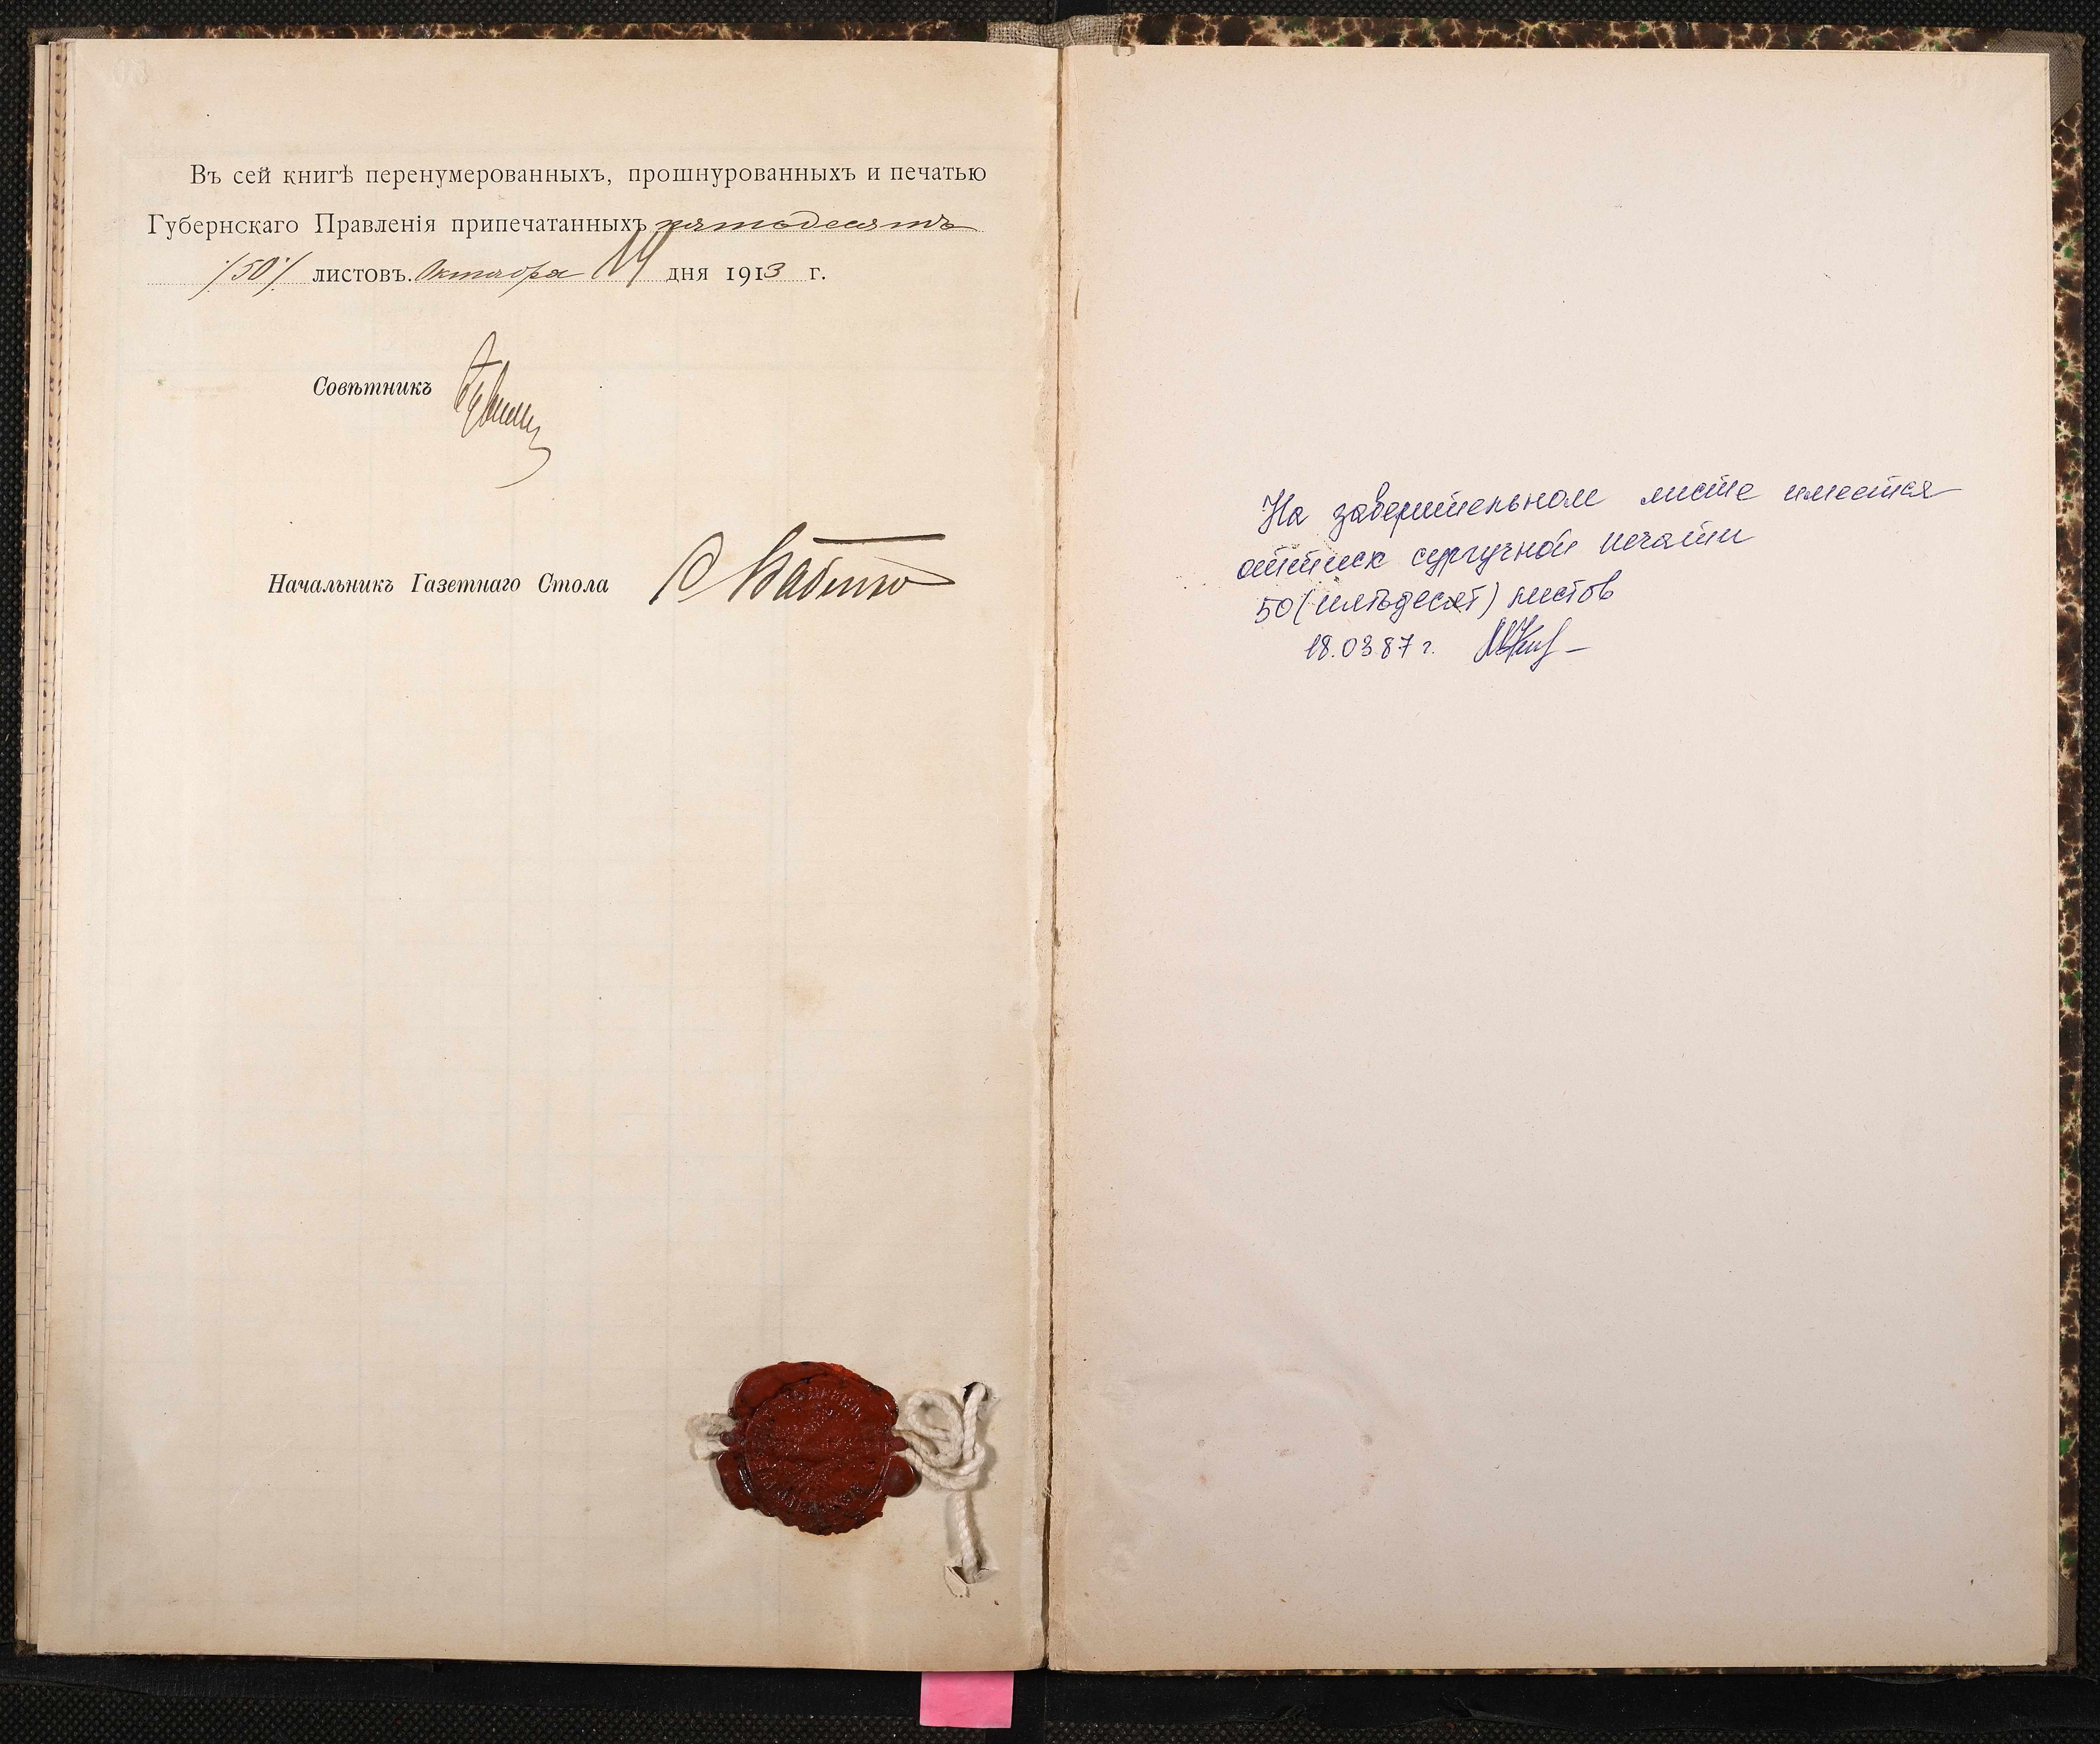 Въ сей книгѣ перенумерованныхъ, прошнурованныхъ и печатью
Губернскаго Правленія припечатанныхъ пятьдесятъ
/50/ листовъ. Октября 14 дня 1913 г.
Совѣтникъ
Начальникъ Газетнаго Стола
На заверительном листе имеется
оттиск сургучной печати
50 (пятьдесят) листов
18.03.87 г.